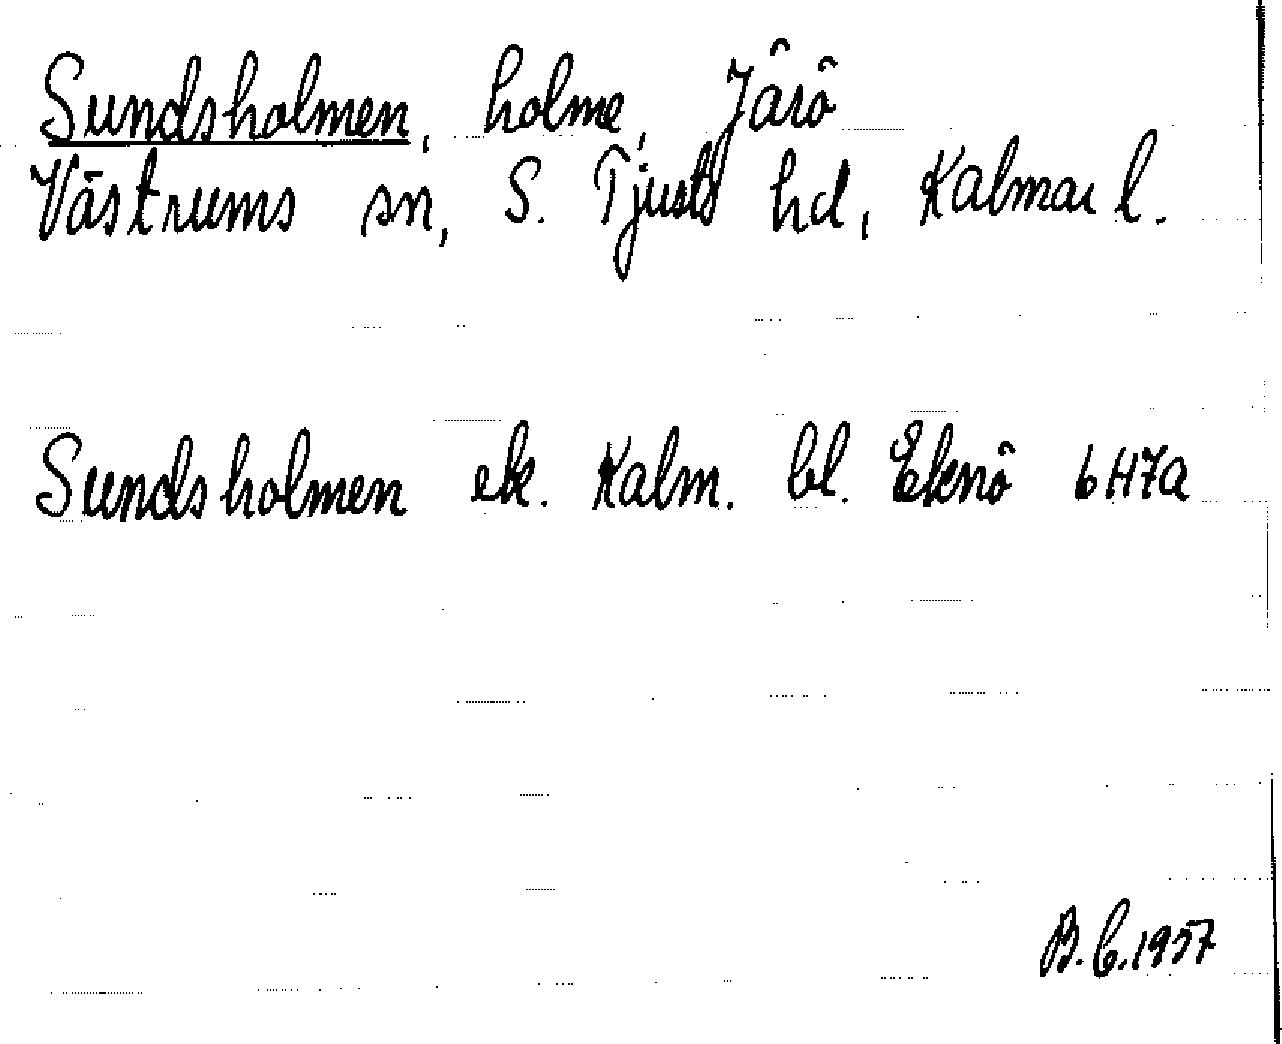 Sundsholmen, holme, Järö
Västrums sn, S. Tjusts hd, Kalmar l.
Sundsholmen ek. Kalm. bl. Eknö 6H7a
B.C.1957